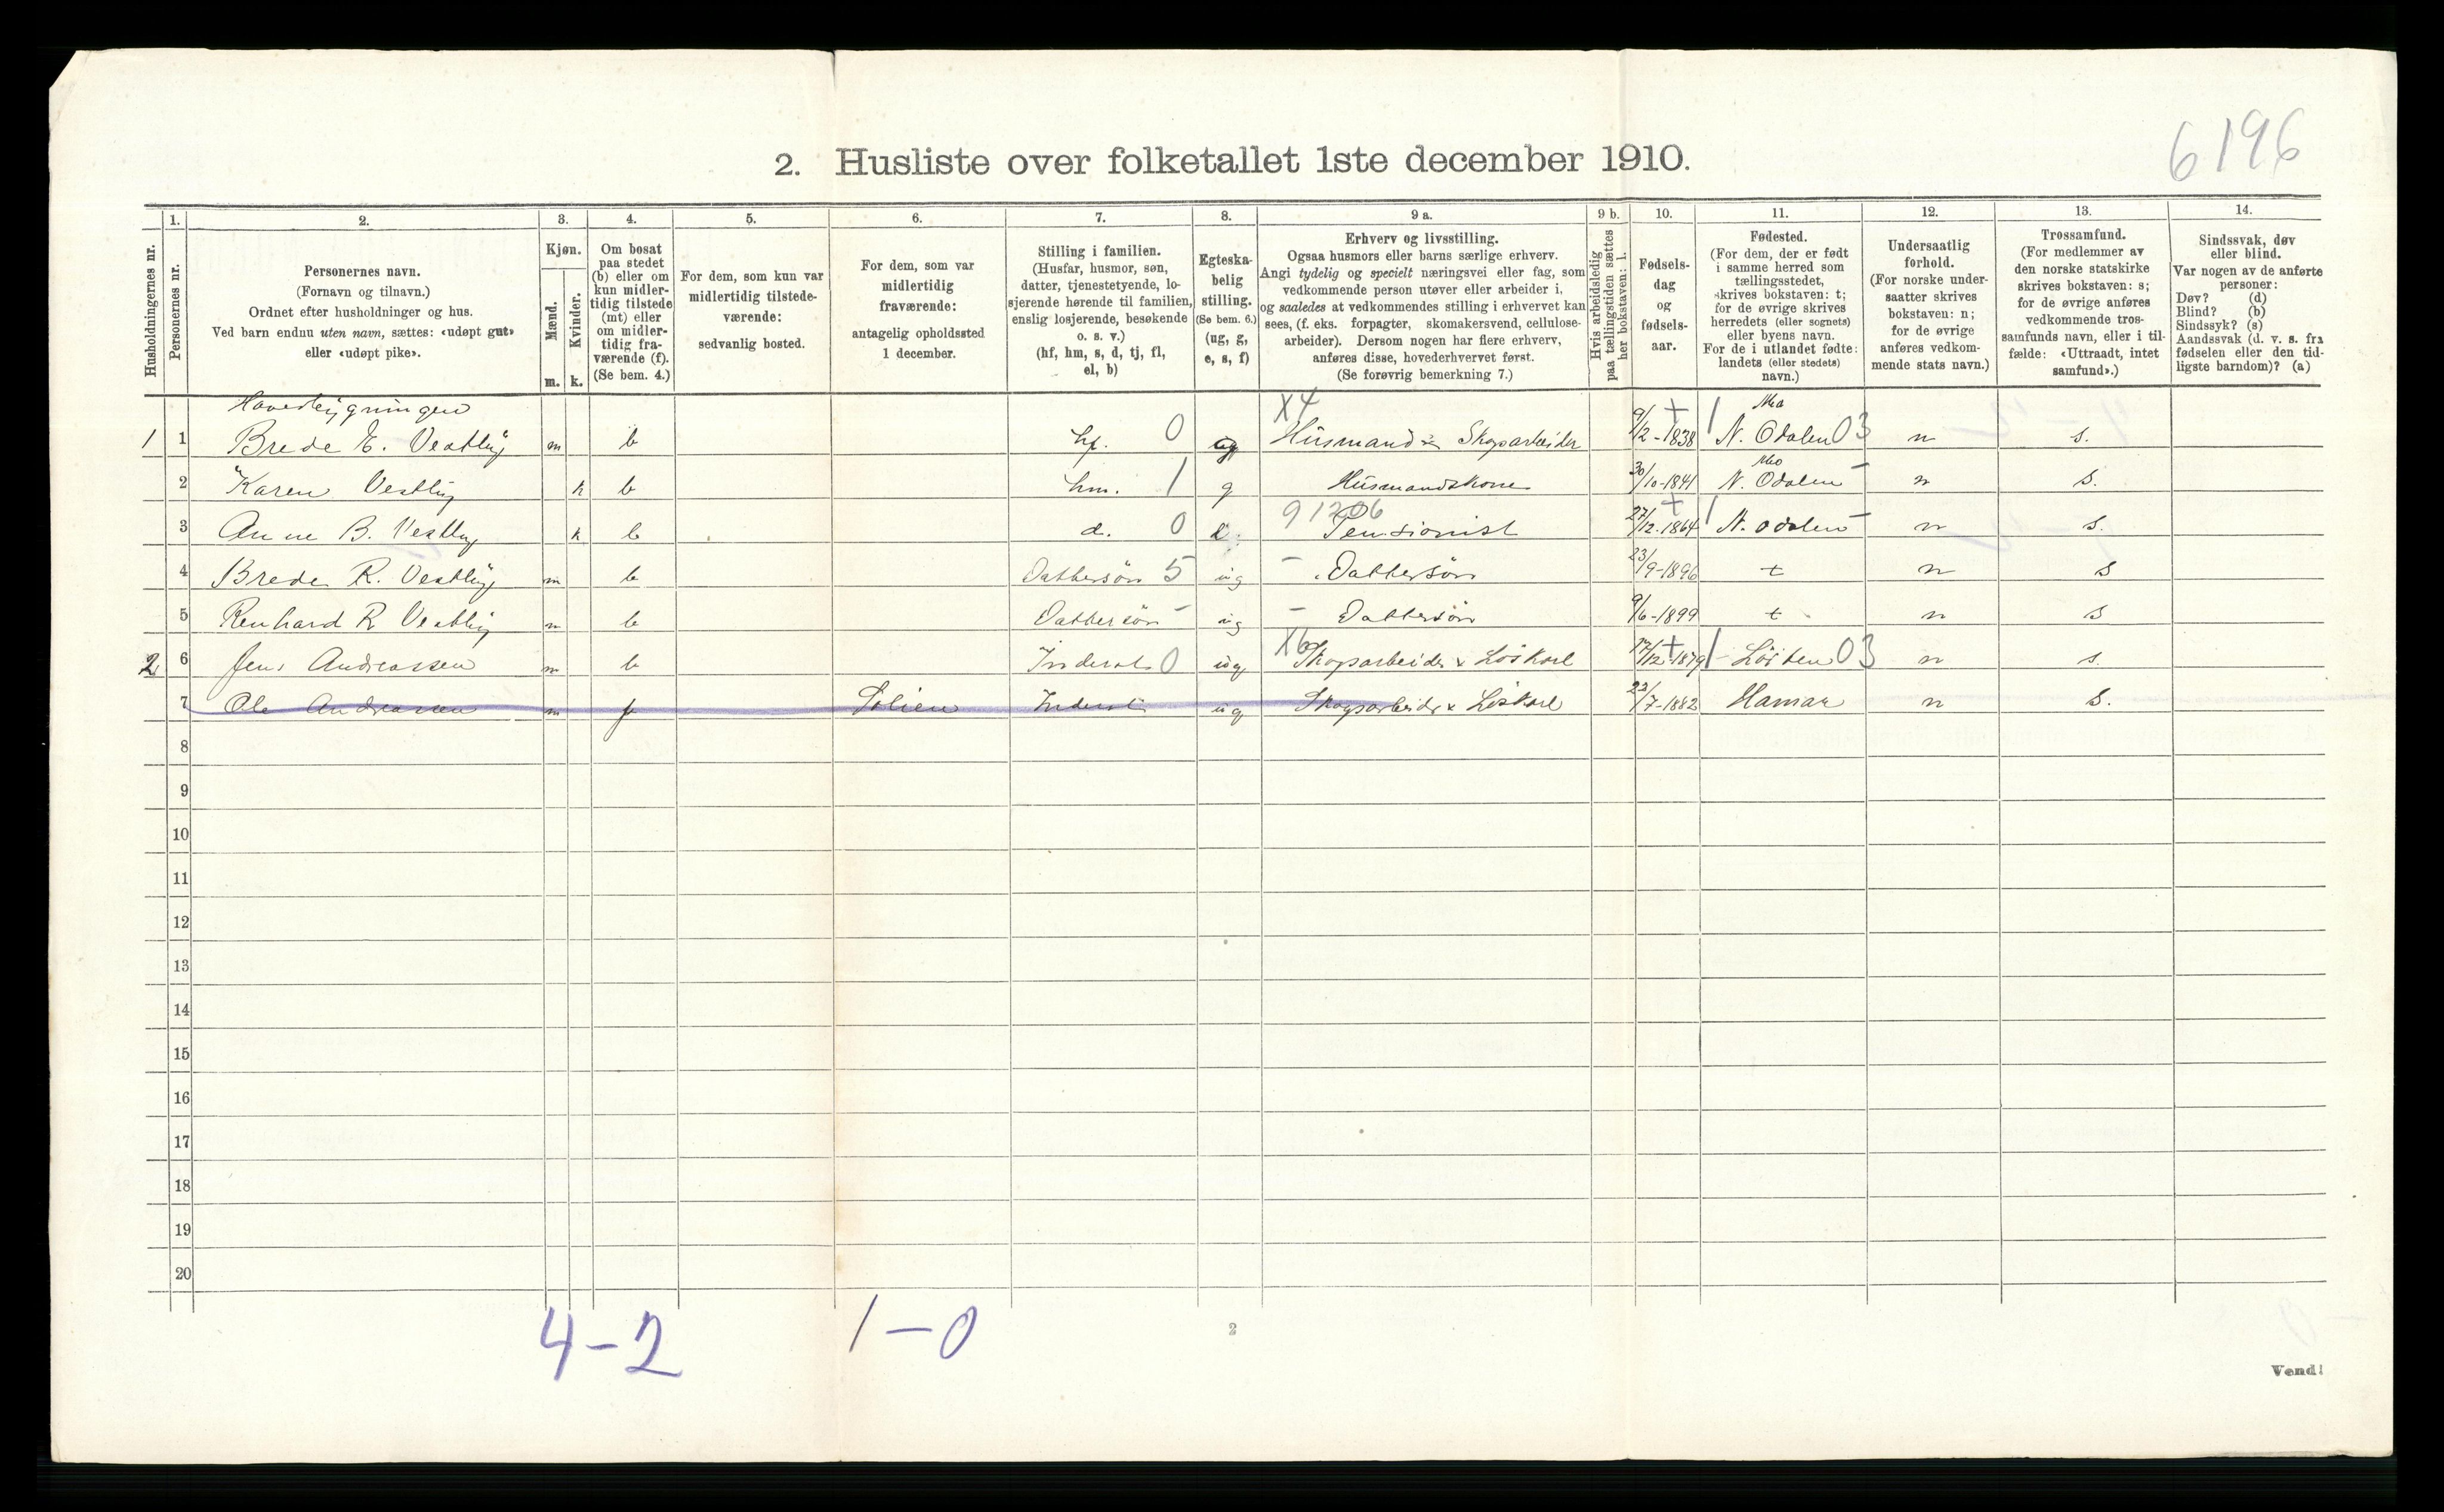 6196
2. Husliste over folketallet 1ste december 1910.
Husholdningernes nr.
1.
Personernes nr.
2.
Personernes navn.
(Fornavn og tilnavn.)
Ordnet efter husholdninger og hus.
Ved barn endnu uten navn, sættes: «udøpt gut»
eller «udøpt pike».
3.
Kjøn.
Mænd.
Kvinder.
m. k.
4.
Om bosat
paa stedet
(b) eller om
kun midler-
tidig tilstede
(mt) eller
om midler-
tidig fra-
værende (f).
(Se bem. 4.)
5.
For dem, som kun var
midlertidig tilstede-
værende:
sedvanlig bosted.
6.
For dem, som var
midlertidig
fraværende:
antagelig opholdssted
1 december.
7.
Stilling i familien.
(Husfar, husmor, søn,
datter, tjenestetyende, lo-
sjerende hørende til familien,
enslig losjerende, besøkende
o. s. v.)
(hf, hm, s, d, tj, fl,
el, b)
8.
Egteska-
belig
stilling.
(Se bem. 6.)
(ug, g,
e, s, f)
9 a.
Erhverv og livsstilling.
Ogsaa husmors eller barns særlige erhverv.
Angi tydelig og specielt næringsvei eller fag, som
vedkommende person utøver eller arbeider i,
og saaledes at vedkommendes stilling i erhvervet kan
sees, (f. eks. forpagter, skomakersvend, cellulose-
arbeider). Dersom nogen har flere erhverv,
anføres disse, hovederhvervet først.
(Se forøvrig bemerkning 7.)
9 b.
Hvis arbeidsledig
paa tællingstiden sættes
her bokstaven: l.
10.
Fødsels-
dag
og
fødsels-
aar.
11.
Fødested.
(For dem, der er født
i samme herred som
tællingsstedet,
skrives bokstaven: t;
for de øvrige skrives
herredets (eller sognets)
eller byens navn.
For de i utlandet fødte:
landets (eller stedets)
navn.)
12.
Undersaatlig
forhold.
(For norske under-
saatter skrives
bokstaven: n;
for de øvrige
anføres vedkom-
mende stats navn.)
13.
Trossamfund.
(For medlemmer av
den norske statskirke
skrives bokstaven: s;
for de øvrige anføres
vedkommende tros-
samfunds navn, eller i til-
fælde: «Uttraadt, intet
samfund».)
14.
Sindssvak, døv
eller blind.
Var nogen av de anførte
personer:
Døv? (d)
Blind? (b)
Sindssyk? (s)
Aandssvak (d. v. s. fra
fødselen eller den tid-
ligste barndom)? (a)
Hovedbygningen X4 Mo
1 1 Brede E. Vestby m b hf. 0 g Husmand x Skogarbeider 9/2-1838 N. Odalen 03 n s.
2 Karen Vestby k b hm. 1 g Husmandskone 30/10-1841 Mo N. Odalen n s.
3 Anne B. Vestby k b d. 0 91206 Pensionist 27/12-1864 N. Odalen n s.
4 Brede R. Vestby m b Dattersön 5 ug Dattersön 23/9-1896 t n s
5 Renhard R Vestby m b Dattersön ug Dattersön 9/6-1899 t n s
2 6 Jens Andreassen m b Inderst 0 ug X6 Skogsarbeider x Löskarl 17/12-1879 Löiten 03 n s.
7 Ole Andreassen m f Solien Inderst ug Skogsarbeider x Löskarl 22/7-1882 Hamar n s.
8
9
10
11
12
13
14
15
16
17
18
19
20
4-2
1-0
2
Vend!